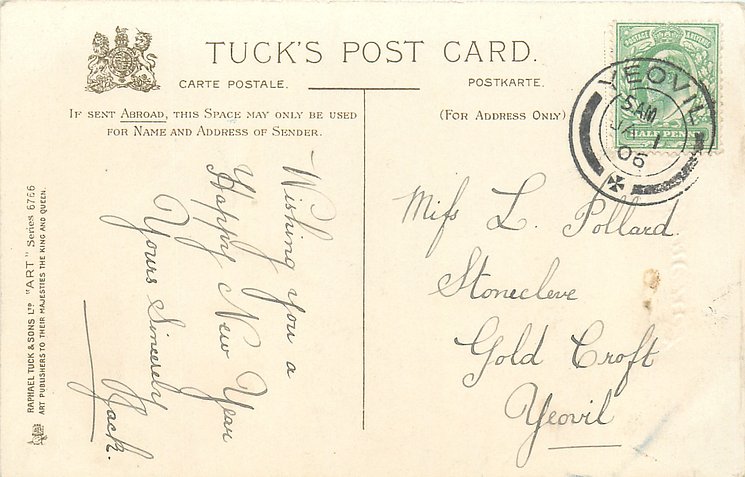 TUCK'S POST CARD.
CARTE POSTALE.
POSTKARTE.
IF SENT ABROAD, THIS SPACE MAY ONLY BE USED
FOR NAME AND ADDRESS OF SENDER.
(FOR ADDRESS ONLY)
POSTAGE & REVENUE
HALF PENNY
YEOVIL
5 AM
JA 1
06
RAPHAEL TUCK & SONS LTD "ART" Series 6766
ART PUBLISHERS TO THEIR MAJESTIES THE KING AND QUEEN.
Wishing you a
Happy New Year
Yours Sincerely
Jack.
Miss L. Pollard.
Stonecleve
Gold Croft
Yeovil